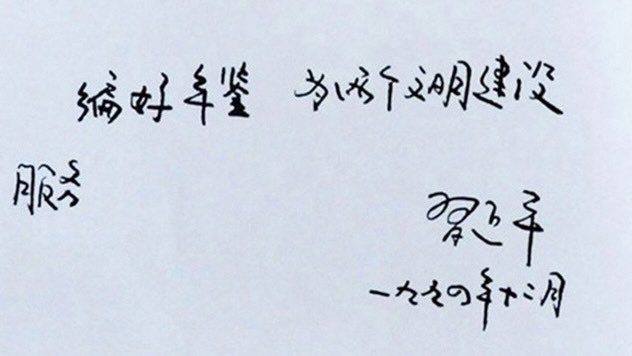 编好年鉴 为两个文明建设
服务
习近平
一九九四年十二月